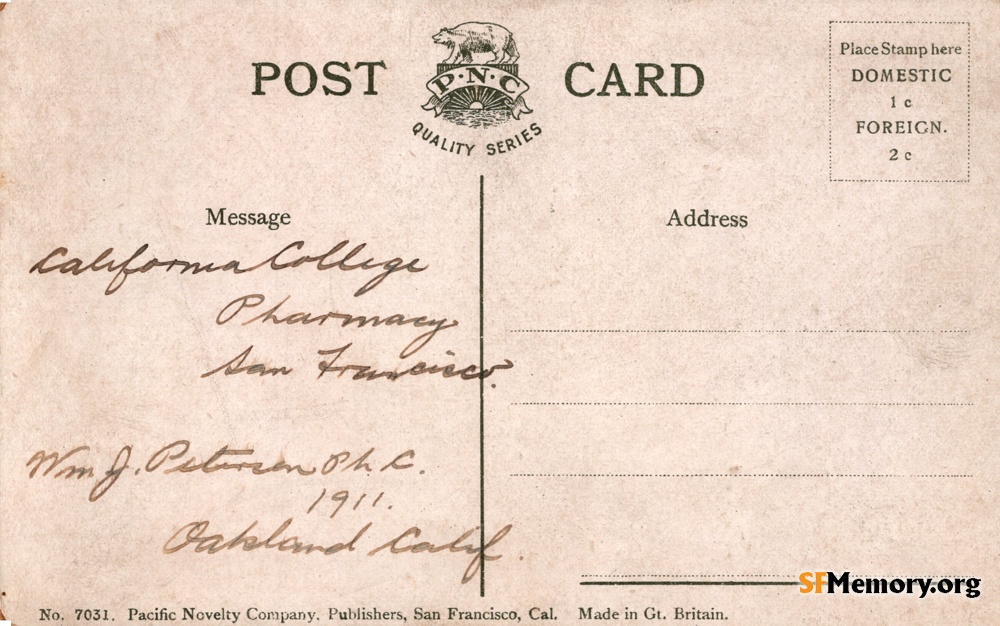 POST CARD
P·N·C
QUALITY SERIES
Place Stamp here
DOMESTIC
1 c
FOREIGN.
2 c
Message
Address
California College
Pharmacy
San Francisco.
Wm J. Petersen Ph. C.
1911.
Oakland Calif.
SFMemory.org
No. 7031. Pacific Novelty Company. Publishers, San Francisco, Cal. Made in Gt. Britain.